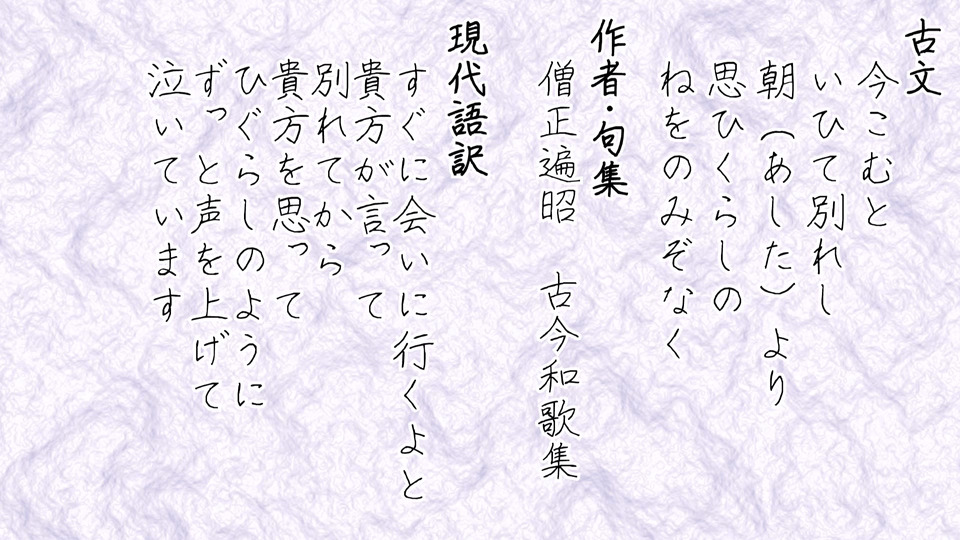 古文
今こむと
いひて別れし
朝(あした)より
思ひくらしの
ねをのみぞなく
作者・句集
僧正遍昭　古今和歌集
現代語訳
すぐに会いに行くよと
貴方が言って
別れてから
貴方を思って
ひぐらしのように
ずっと声を上げて
泣いています